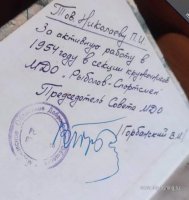 Тов Николаеву П.И.
За активную работу в
1954 году в секции спиннингистов
МДО "Рыболов-Спортсмен"
Председатель Совета МДО
Горбанский В.М.